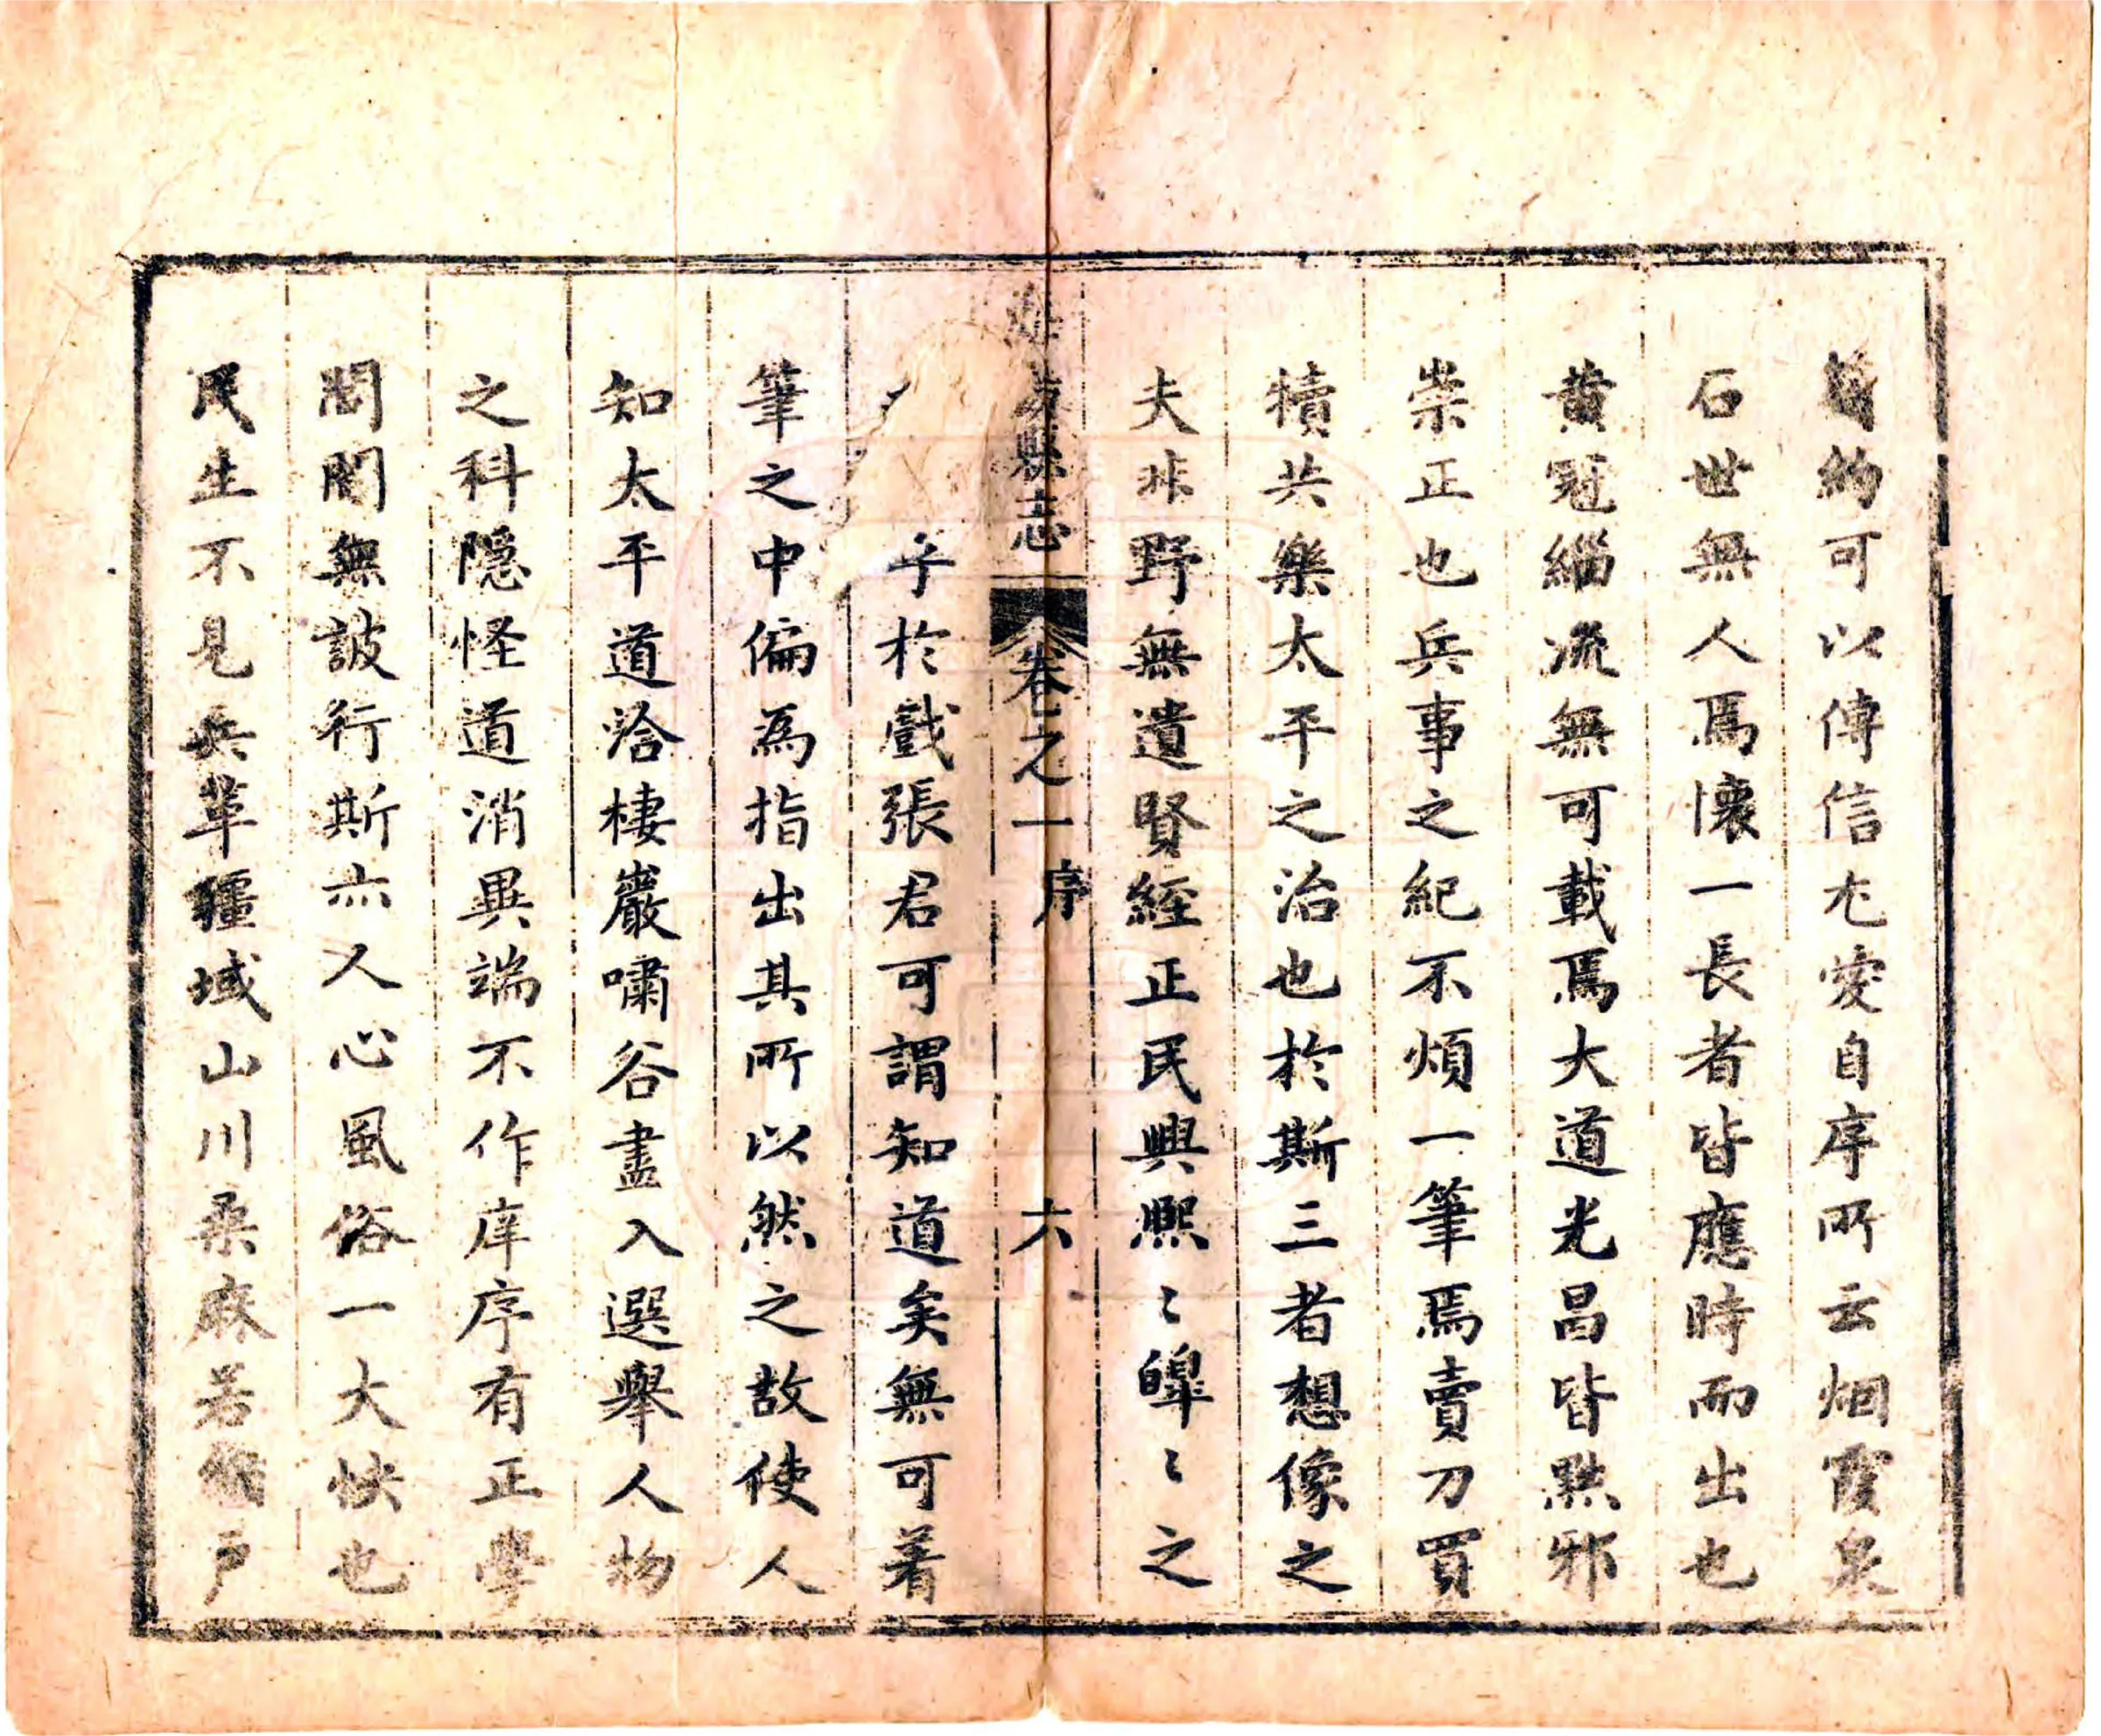 簡約可以傳信尢愛自序所云烟霞泉
石世無人焉懷一長者皆應時而出也
黄冠緇流無可載焉大道光昌皆黙邪
崇正也兵事之紀不煩一筆焉賣刀買
犢共樂太平之治也於斯三者想像之
夫非野無遺賢經正民興熈〻皥〻之
縣志 卷之一 序 六
乎於戲張君可謂知道矣無可着
筆之中偏為指出其所以然之故使人
知太平道洽棲巖嘯谷盡入選舉人物
之科隠怪道消異端不作庠序有正學
閭閻無詖行斯亦人心風俗一大快也
民生不見兵革疆域山川桑麻若 戸